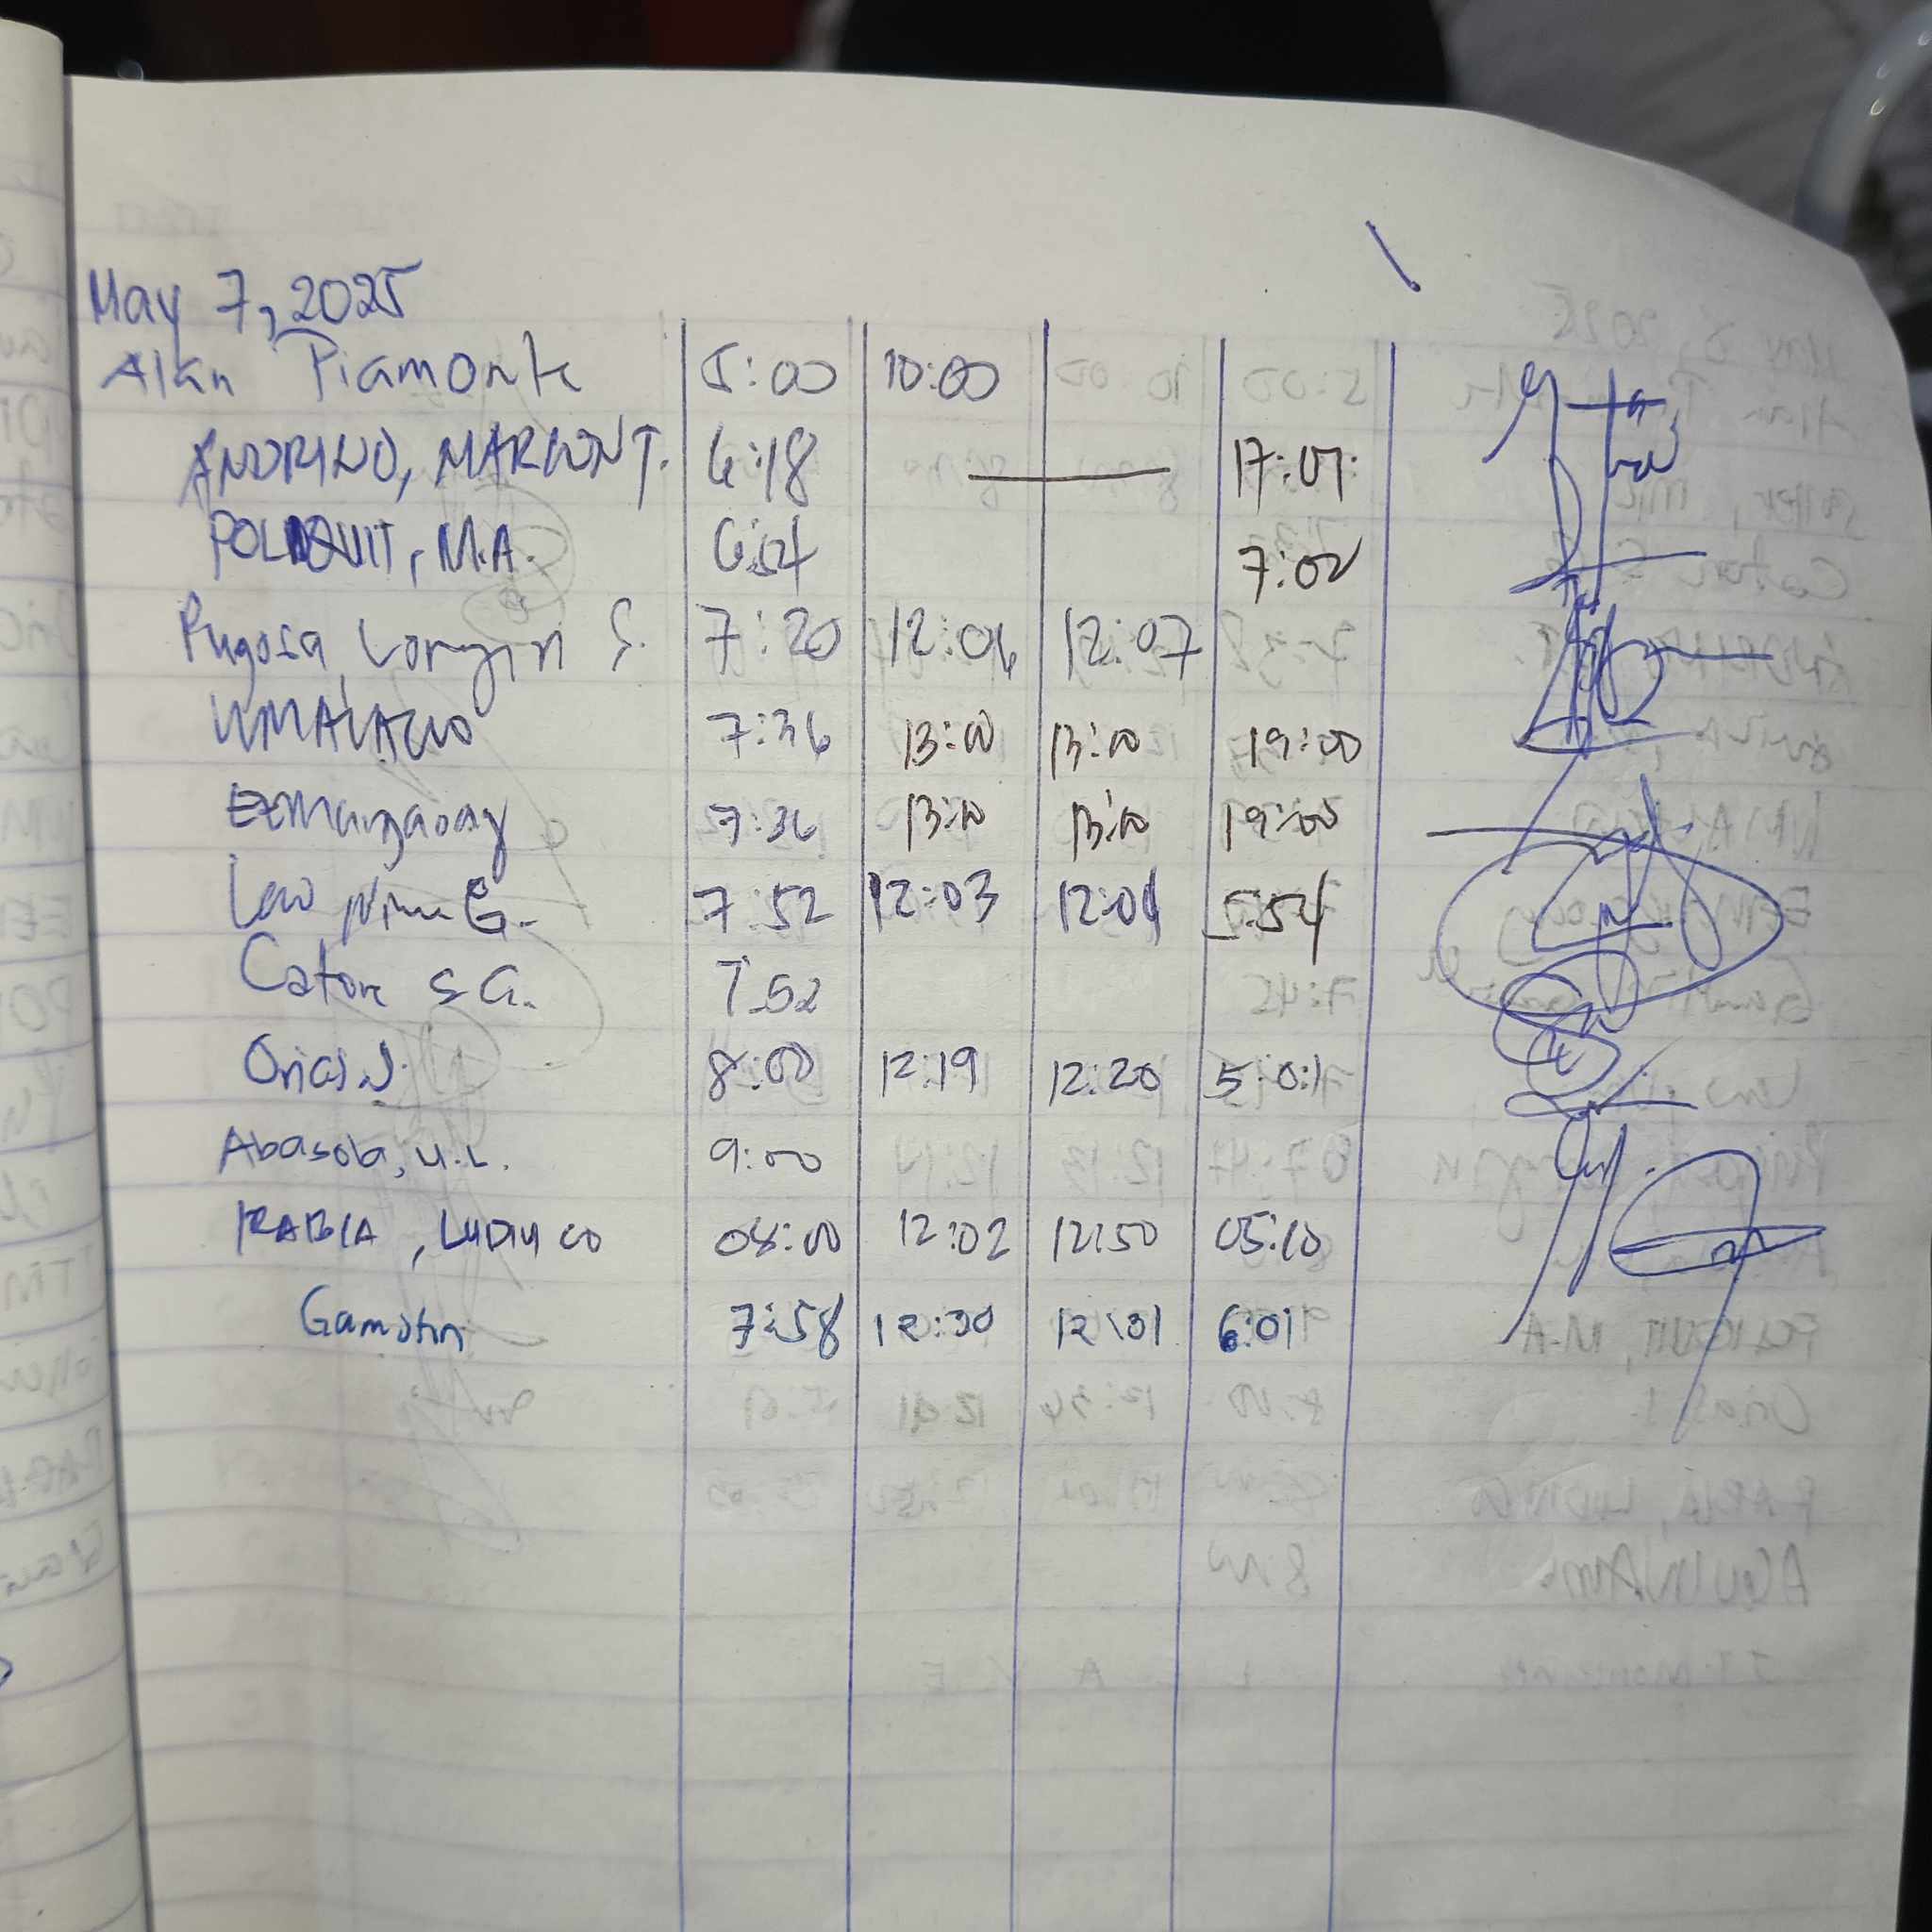 May 7, 2025
Alan Piamonte 5:00 10:00
ANDRINO, MARLON T. 6:18 — 17:07
POLIQUIT, M.A. 6:54 7:02
Pugosa, Longin S. 7:20 12:06 12:07
UMALACIO 7:36 13:00 13:00 19:00
7:36 13:00 13:00 19:00
G. 7:52 12:03 12:04 5:54
Catore S.G. 7:52
Orias J. 8:00 12:19 12:20 5:01
Abasola, 9:00
RABIA, LUDIVICO 08:00 12:02 12:50 05:10
Gamotin 7:58 12:30 12:31 6:01